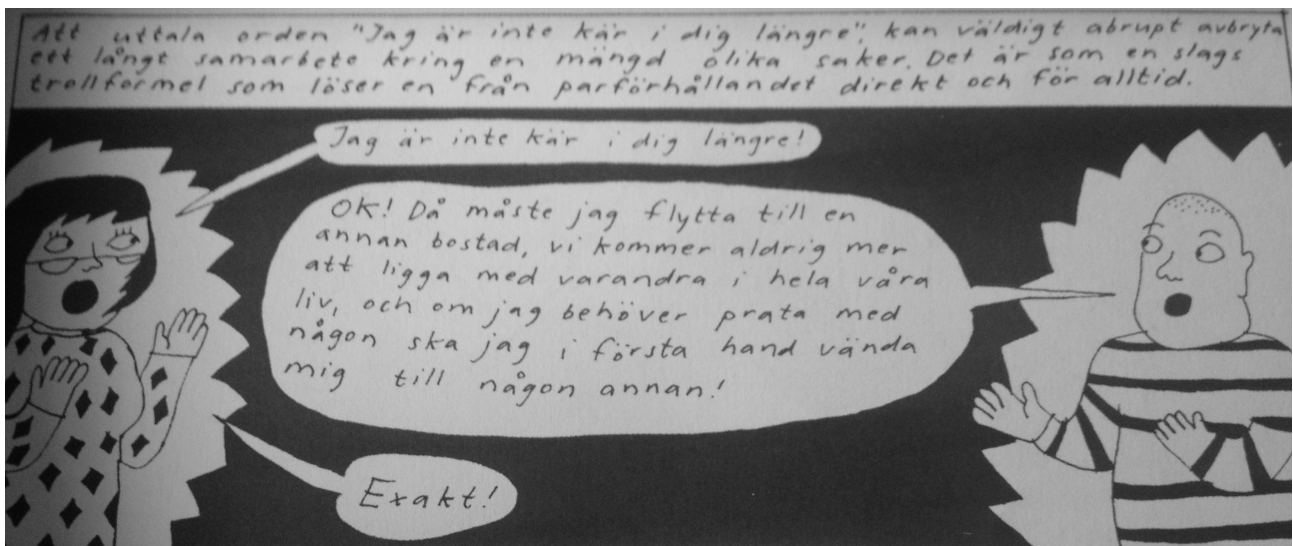 Att uttala orden "Jag är inte kär i dig längre", kan väldigt abrupt avbryta
ett långt samarbete kring en mängd olika saker. Det är som en slags
trollformel som löser en från parförhållandet direkt och för alltid.
Jag är inte kär i dig längre!
OK! Då måste jag flytta till en
annan bostad, vi kommer aldrig mer
att ligga med varandra i hela våra
liv, och om jag behöver prata med
någon ska jag i första hand vända
mig till någon annan!
Exakt!